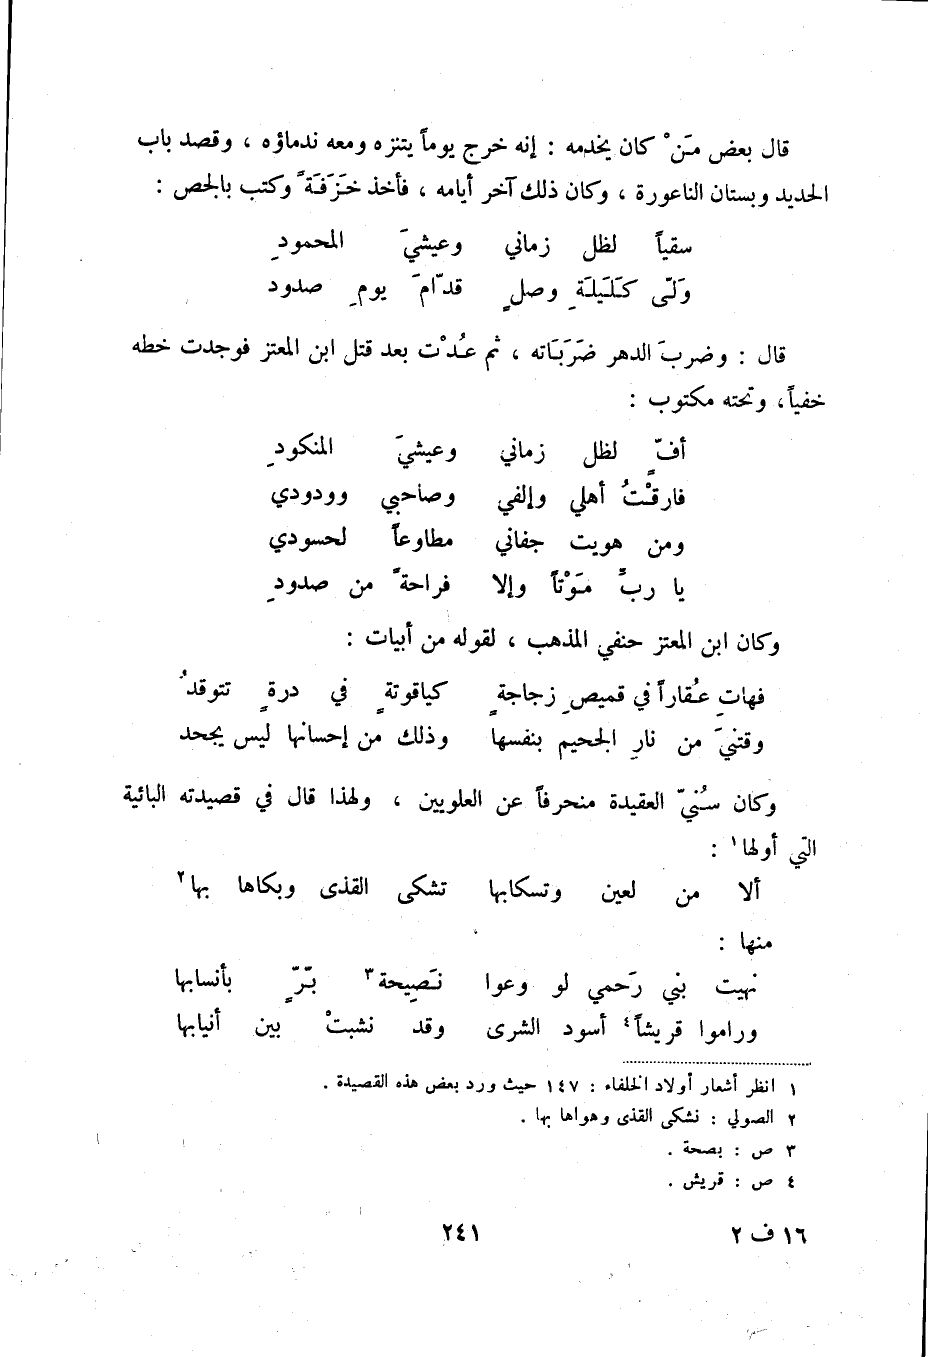 قال بعض مَنْ كان يخدمه : إنه خرج يوماً يتنزه ومعه ندماؤه ، وقصد باب
الحديد وبستان الناعورة ، وكان ذلك آخر أيامه ، فأخذ خَزَفَةً وكتب بالجص :
سقياً لظل زماني وعيشيَ المحمودِ
وَلّى كَلَيلَةِ وصلٍ قدّامَ يومِ صدود
قال : وضربَ الدهر ضَرَبَاته ، ثم عُدْت بعد قتل ابن المعتز فوجدت خطه
خفياً، وتحته مكتوب :
أفٍّ لظل زماني وعيشيَ المنكودِ
فارقْتُ أهلي وإلفي وصاحبي وودودي
ومن هويت جفاني مطاوعاً لحسودي
يا ربُّ مَوْتاً وإلا فراحةً من صدودِ
وكان ابن المعتز حنفي المذهب ، لقوله من أبيات :
فهاتِ عُقاراً في قميصِ زجاجةٍ كياقوتةٍ في درةٍ تتوقدُ
وقتنيَ من نارِ الجحيم بنفسها وذلك من إحسانها ليس يجحد
وكان سُنيّ العقيدة منحرفاً عن العلويين ، ولهذا قال في قصيدته البائية
التي أولها١ :
ألا من لعين وتسكابها تشكى القذى وبكاها بها٢
منها :
نهيت بني رَحمي لو وعوا نَصِيحة٣ بَرٍّ بأنسابها
وراموا قريشاً٤ أسود الشرى وقد نشبتْ بين أنيابها
١ انظر أشعار أولاد الخلفاء : ١٤٧ حيث ورد بعض هذه القصيدة .
٢ الصولي : نشكى القذى وهواها بها .
٣ ص : بصحة .
٤ ص : قريش .
١٦ ف ٢ ٢٤١